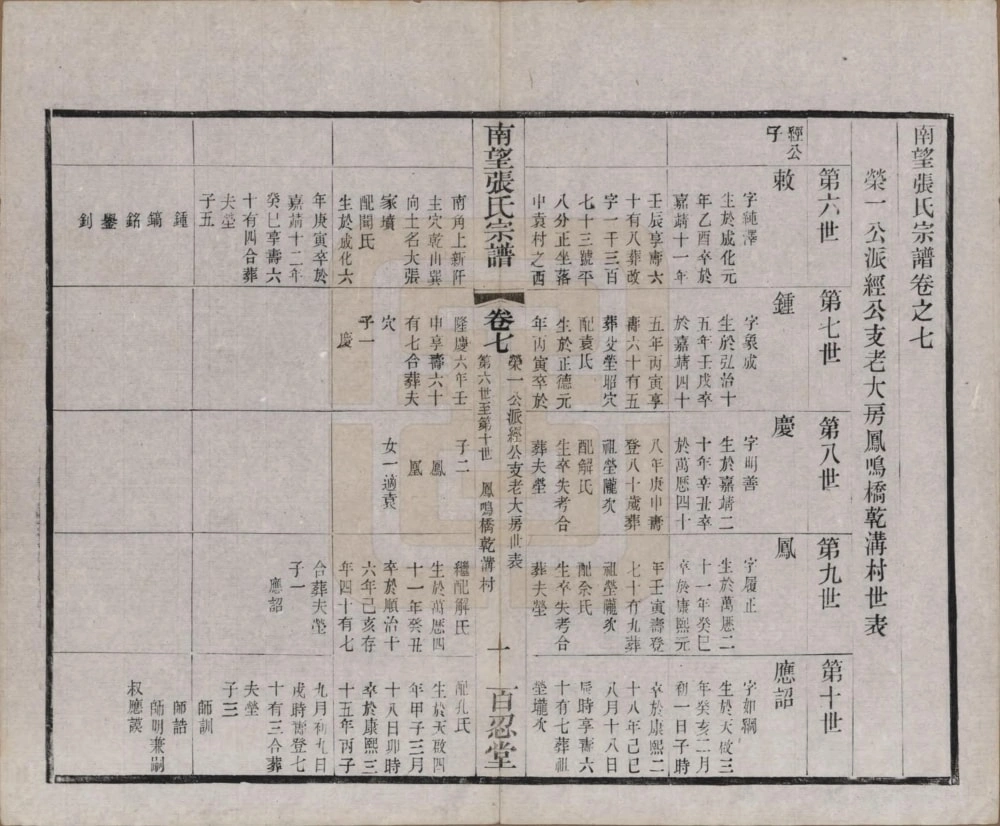 南望張氏宗譜卷之七
榮一公派經公支老大房鳳鳴橋乾溝村世表
第六世
經公
子
敕
字純澤
生於成化元
年乙酉卒於
嘉靖十一年
壬辰享壽六
十有八葬改
字一千三百
七十三號平
八分正坐落
中袁村之西
南角上新阡
主穴乾山巽
向土名大張
家墳
配閻氏
生於成化六
年庚寅卒於
嘉靖十二年
癸巳享壽六
十有四合葬
夫塋
子五
鍾
鎬
銘
鑾
釗
第七世
鍾
字景成
生於弘治十
五年壬戌卒
於嘉靖四十
五年丙寅享
壽六十有五
葬父塋昭穴
配袁氏
生於正德元
年丙寅卒於
隆慶六年壬
申享壽六十
有七合葬夫
穴
子一
慶
第八世
慶
字明善
生於嘉靖二
十年辛丑卒
於萬厯四十
八年庚申壽
登八十歲葬
祖塋隴次
配解氏
生卒失考合
葬夫塋
子二
鳳
凰
女一適袁
第九世
鳳
字履正
生於萬厯二
十一年癸巳
卒於康熙元
年壬寅壽登
七十有九葬
祖塋隴次
配佘氏
生卒失考合
葬夫塋
繼配解氏
生於萬厯四
十一年癸丑
卒於順治十
六年己亥存
年四十有七
合葬夫塋
子一
應詔
第十世
應詔
字如綱
生於天啟三
年癸亥二月
初一日子時
卒於康熙二
十八年己巳
八月十八日
辰時享壽六
十有七葬祖
塋壠次
配孔氏
生於天啟四
年甲子三月
十八日卯時
卒於康熙三
十五年丙子
九月初九日
戌時壽登七
十有三合葬
夫塋
子三
師訓
師誥
師明兼嗣
叔應諼
南望張氏宗譜
卷七
榮一公派經公支老大房世表
第六世至第十世
鳳鳴橋乾溝村
一
百忍堂